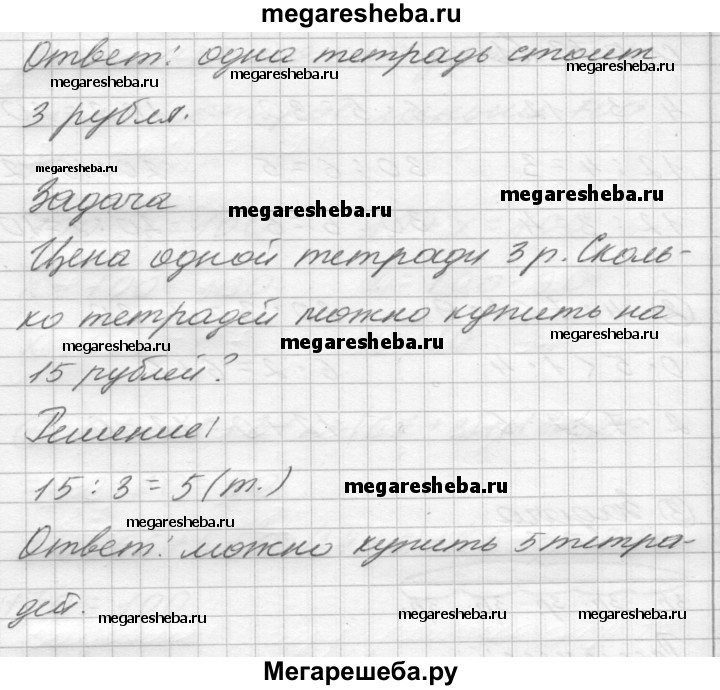 megaresheba.ru
Ответ: одна тетрадь стоит
megaresheba.ru megaresheba.ru megaresheba.ru
3 рубля.
megaresheba.ru
Задача megaresheba.ru megaresheba.ru
Цена одной тетради 3 р. Сколь-
ко тетрадей можно купить на
megaresheba.ru megaresheba.ru megaresheba.ru
15 рублей?
Решение:
15 : 3 = 5 (т.) megaresheba.ru
megaresheba.ru
Ответ: можно купить 5 тетра-
дей. megaresheba.ru megaresheba.ru megaresheba.ru
Мегарешеба.ру